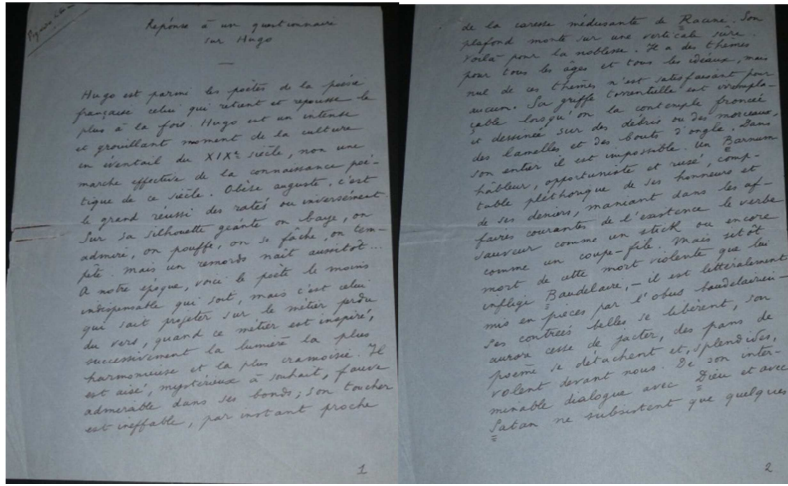 Réponse à un questionnaire
sur Hugo
Hugo est parmi les poètes de la poésie
française celui qui retient et repousse le
plus à la fois. Hugo est un intense
et grouillant moment de la culture
en éventail du XIXe siècle, non une
marche effective de la connaissance poé-
tique de ce siècle. auguste, c'est
le grand réussi des ratés ou inversement.
Sur sa silhouette géante on baye, on
admire, on pouffe, on se fâche, on tem-
pête, mais un remords naît aussitôt...
A notre époque, voici le poète le moins
indispensable qui soit, mais c'est celui
qui sait projeter sur le métier perdu
du vers, quand ce métier est inspiré,
successivement la lumière la plus
harmonieuse et la plus cramoisie. Il
est aisé, mystérieux à souhait, fauve
admirable dans ses bonds; son toucher
est ineffable, par instant proche
1
de la caresse médusante de Racine. Son
plafond monte sur une verticale sûre.
Voilà pour la noblesse. Il a des thèmes
pour tous les âges et tous les idéaux, mais
nul de ces thèmes n'est satisfaisant pour
aucun. Sa griffe torrentielle est irrempla-
çable lorsqu'on la contemple froncée
et dessinée sur des débris ou des morceaux,
des lamelles et des bouts d'ongle. Dans
son entier il est impossible. Un Barnum
hâbleur, opportuniste et rusé, comp-
table pléthorique de ses honneurs et
de ses deniers, maniant dans les af-
faires courantes de l'existence le verbe
sauveur comme un stick ou encore
comme un coupe-file. Mais sitôt
mort de cette mort violente que lui
inflige Baudelaire, - il est littéralement
mis en pièces par l'obus baudelairien -
ses contrées belles se libèrent, son
aurore cesse de jacter, des pans de
poème se détachent et, splendides,
volent devant nous. De son inter-
minable dialogue avec Dieu et avec
Satan ne subsistent que quelques
2